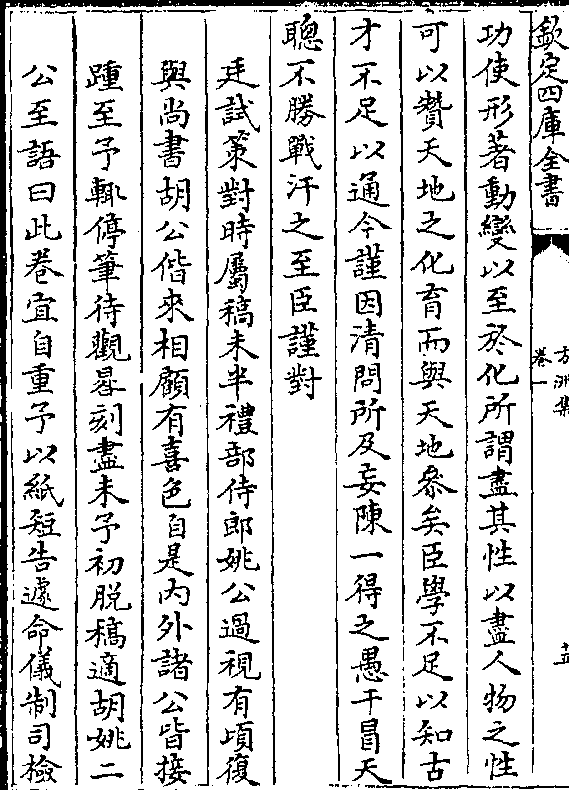 欽定四庫全書
方洲集
卷一
功使形著動變以至於化所謂盡其性以盡人物之性
可以贊天地之化育而與天地參矣臣學不足以知古
才不足以通今謹因清問所及妄陳一得之愚干冒天
聰不勝戰汗之至臣謹對
廷試策對時屬稿未半禮部侍郎姚公過視有頃復
與尚書胡公偕來相顧有喜色自是内外諸公皆接
踵至予輒停筆待觀晷刻盡未予初脱稿適胡姚二
公至語曰此卷宜自重予以紙短告遽命儀制司檢